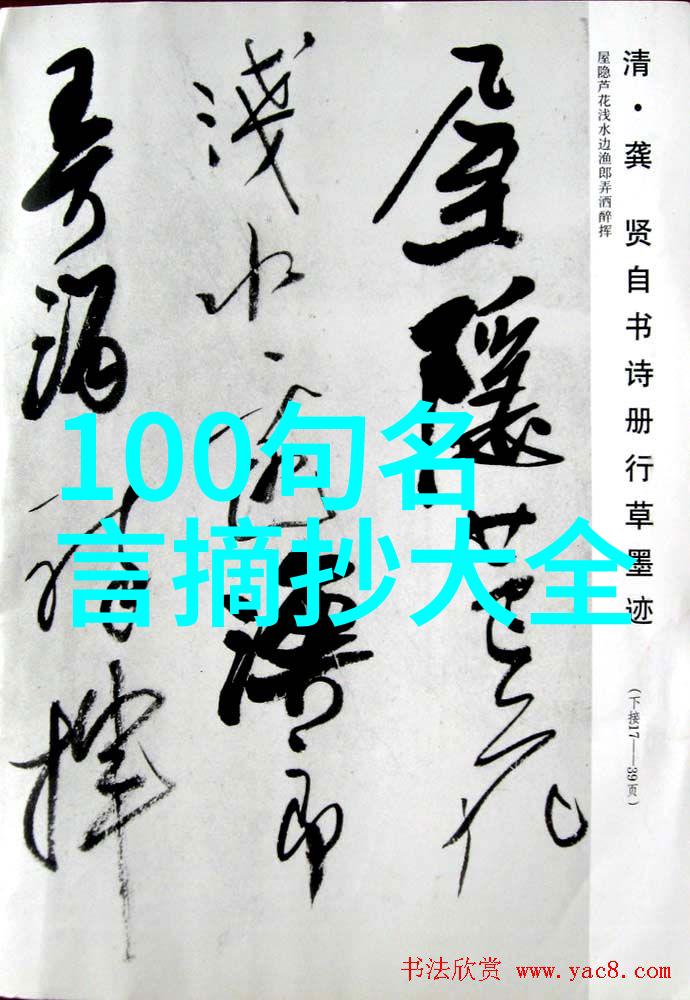 清·龚 贤自书诗册行草墨迹
(下接17——39页)
屋隐芦花浅水边渔郎弄洒醉挥
屋隱蘆花
淺水邊漁郎
弄酒醉揮
100句名
言摘抄大全
书法欣赏 www.yac8.com